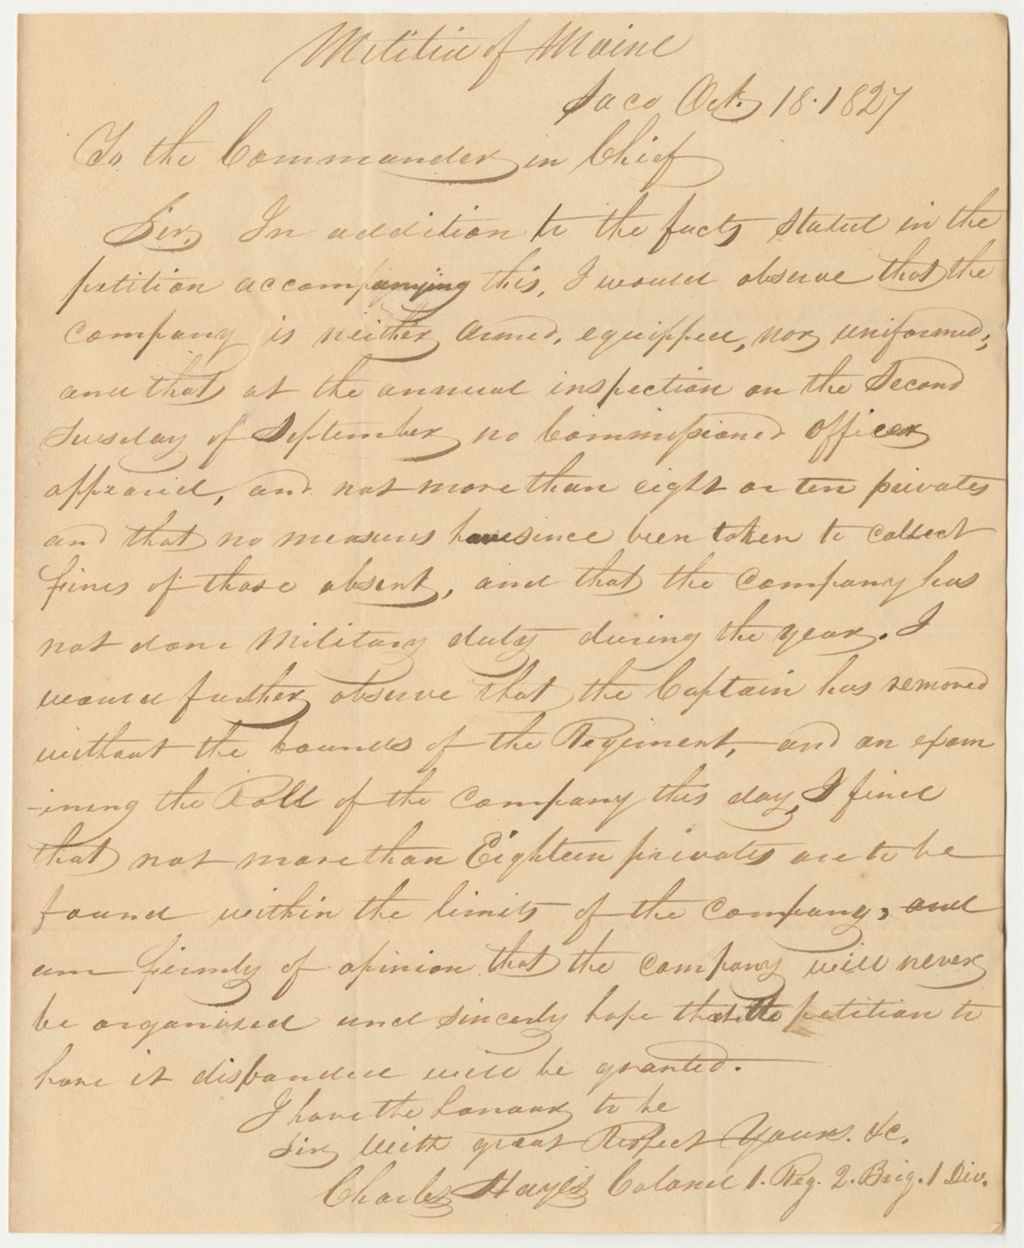 Militia of Maine
Saco Oct. 18. 1827
To the Commander in Chief
Sir, In addition to the facts stated in the
petition accompanying this, I would observe that the
company is neither armed, equipped, nor uniformed;
and that at the annual inspection on the Second
Tuesday of September no Commissioned officer
appeared, and not more than eight or ten privates
and that no measures have since been taken to collect
fines of those absent, and that the company has
not done Military duty during the year. I
would further observe that the Captain has removed
without the bounds of the Regiment, and on exam
-ining the Roll of the company this day, I find
that not more than Eighteen privates are to be
found within the limits of the company, and
am firmly of opinion that the company will never
be organized and sincerely hope that the petition to
have it disbanded will be granted.
I have the honour to be
Sir with great Respect Yours. &c.
Charles Hayes Colonel 1. Reg. 2. Brig. 1 Div.